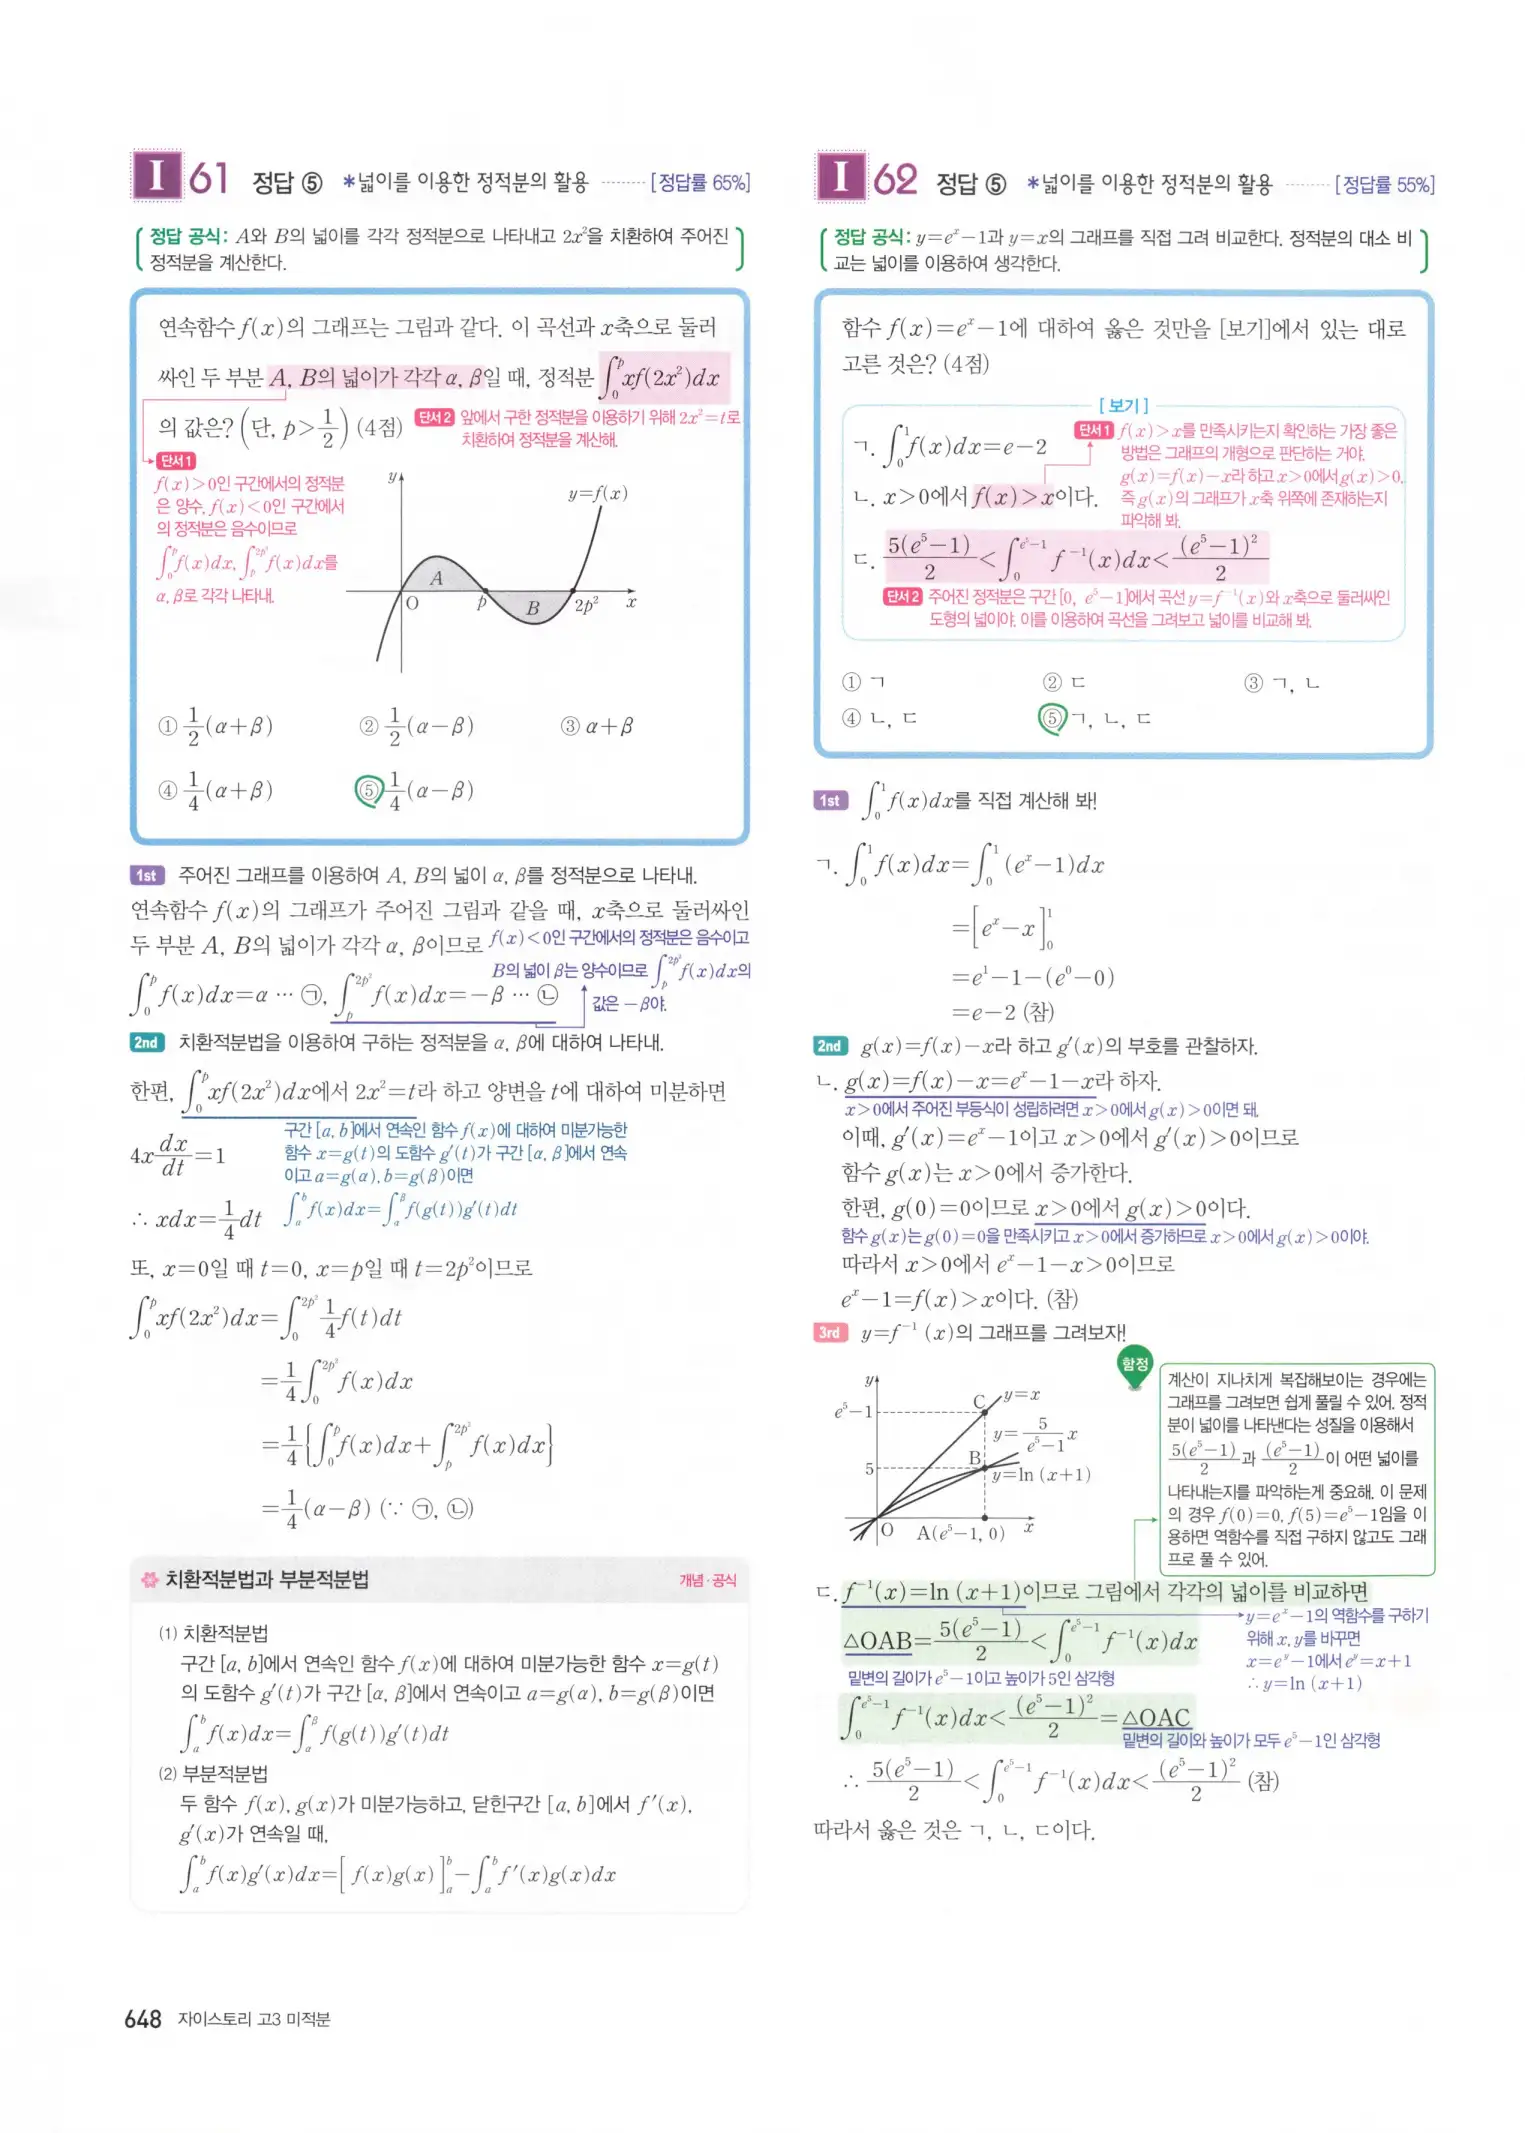 I 61 정답 ⑤ *넓이를 이용한 정적분의 활용 ········ [정답률 65%]
정답 공식: A와 B의 넓이를 각각 정적분으로 나타내고 2x²을 치환하여 주어진
정적분을 계산한다.
연속함수 f(x)의 그래프는 그림과 같다. 이 곡선과 x축으로 둘러
싸인 두 부분 A, B의 넓이가 각각 α, β일 때, 정적분 ∫₀ᵖ xf(2x²)dx
의 값은? (단, p>1/2) (4점)
단서2 앞에서 구한 정적분을 이용하기 위해 2x²=t로
치환하여 정적분을 계산해.
단서1
f(x)>0인 구간에서의 정적분
은 양수, f(x)<0인 구간에서
의 정적분은 음수이므로
∫₀ᵖ f(x)dx, ∫ₚ^{2p²} f(x)dx를
α, β로 각각 나타내.
y
y=f(x)
A
O p B 2p² x
① 1/2(α+β) ② 1/2(α−β) ③ α+β
④ 1/4(α+β) ⑤ 1/4(α−β)
1st 주어진 그래프를 이용하여 A, B의 넓이 α, β를 정적분으로 나타내.
연속함수 f(x)의 그래프가 주어진 그림과 같을 때, x축으로 둘러싸인
두 부분 A, B의 넓이가 각각 α, β이므로
f(x)<0인 구간에서의 정적분은 음수이고
B의 넓이 β는 양수이므로 ∫ₚ^{2p²} f(x)dx의
값은 −β야.
∫₀ᵖ f(x)dx=α ⋯ ㉠, ∫ₚ^{2p²} f(x)dx=−β ⋯ ㉡
2nd 치환적분법을 이용하여 구하는 정적분을 α, β에 대하여 나타내.
한편, ∫₀ᵖ xf(2x²)dx에서 2x²=t라 하고 양변을 t에 대하여 미분하면
4x dx/dt=1
구간 [a, b]에서 연속인 함수 f(x)에 대하여 미분가능한
함수 x=g(t)의 도함수 g′(t)가 구간 [α, β]에서 연속
이고 a=g(α), b=g(β)이면
∫ₐᵇ f(x)dx=∫_α^β f(g(t))g′(t)dt
∴ xdx=1/4 dt
또, x=0일 때 t=0, x=p일 때 t=2p²이므로
∫₀ᵖ xf(2x²)dx=∫₀^{2p²} 1/4 f(t)dt
=1/4 ∫₀^{2p²} f(x)dx
=1/4 {∫₀ᵖ f(x)dx+∫ₚ^{2p²} f(x)dx}
=1/4(α−β) (∵ ㉠, ㉡)
치환적분법과 부분적분법 개념·공식
(1) 치환적분법
구간 [a, b]에서 연속인 함수 f(x)에 대하여 미분가능한 함수 x=g(t)
의 도함수 g′(t)가 구간 [α, β]에서 연속이고 a=g(α), b=g(β)이면
∫ₐᵇ f(x)dx=∫_α^β f(g(t))g′(t)dt
(2) 부분적분법
두 함수 f(x), g(x)가 미분가능하고, 닫힌구간 [a, b]에서 f′(x),
g′(x)가 연속일 때,
∫ₐᵇ f(x)g′(x)dx=[f(x)g(x)]ₐᵇ−∫ₐᵇ f′(x)g(x)dx
648 자이스토리 고3 미적분
I 62 정답 ⑤ *넓이를 이용한 정적분의 활용 ········ [정답률 55%]
정답 공식: y=eˣ−1과 y=x의 그래프를 직접 그려 비교한다. 정적분의 대소 비
교는 넓이를 이용하여 생각한다.
함수 f(x)=eˣ−1에 대하여 옳은 것만을 [보기]에서 있는 대로
고른 것은? (4점)
[보기]
ㄱ. ∫₀¹ f(x)dx=e−2
단서1 f(x)>x를 만족시키는지 확인하는 가장 좋은
방법은 그래프의 개형으로 판단하는 거야.
g(x)=f(x)−x라 하고 x>0에서 g(x)>0,
즉 g(x)의 그래프가 x축 위쪽에 존재하는지
파악해 봐.
ㄴ. x>0에서 f(x)>x이다.
ㄷ. 5(e⁵−1)/2<∫₀^{e⁵−1} f⁻¹(x)dx<(e⁵−1)²/2
단서2 주어진 정적분은 구간 [0, e⁵−1]에서 곡선 y=f⁻¹(x)와 x축으로 둘러싸인
도형의 넓이야. 이를 이용하여 곡선을 그려보고 넓이를 비교해 봐.
① ㄱ ② ㄷ ③ ㄱ, ㄴ
④ ㄴ, ㄷ ⑤ ㄱ, ㄴ, ㄷ
1st ∫₀¹ f(x)dx를 직접 계산해 봐!
ㄱ. ∫₀¹ f(x)dx=∫₀¹ (eˣ−1)dx
=[eˣ−x]₀¹
=e¹−1−(e⁰−0)
=e−2 (참)
2nd g(x)=f(x)−x라 하고 g′(x)의 부호를 관찰하자.
ㄴ. g(x)=f(x)−x=eˣ−1−x라 하자.
x>0에서 주어진 부등식이 성립하려면 x>0에서 g(x)>0이면 돼.
이때, g′(x)=eˣ−1이고 x>0에서 g′(x)>0이므로
함수 g(x)는 x>0에서 증가한다.
한편, g(0)=0이므로 x>0에서 g(x)>0이다.
함수 g(x)는 g(0)=0을 만족시키고 x>0에서 증가하므로 x>0에서 g(x)>0이야.
따라서 x>0에서 eˣ−1−x>0이므로
eˣ−1=f(x)>x이다. (참)
3rd y=f⁻¹(x)의 그래프를 그려보자!
y
e⁵−1 C y=x
y=5/(e⁵−1) x
5 B
y=ln (x+1)
O A(e⁵−1, 0) x
함정
계산이 지나치게 복잡해보이는 경우에는
그래프를 그려보면 쉽게 풀릴 수 있어. 정적
분이 넓이를 나타낸다는 성질을 이용해서
5(e⁵−1)/2과 (e⁵−1)²/2이 어떤 넓이를
나타내는지를 파악하는게 중요해. 이 문제
의 경우 f(0)=0, f(5)=e⁵−1임을 이
용하면 역함수를 직접 구하지 않고도 그래
프로 풀 수 있어.
ㄷ. f⁻¹(x)=ln (x+1)이므로 그림에서 각각의 넓이를 비교하면
△OAB=5(e⁵−1)/2<∫₀^{e⁵−1} f⁻¹(x)dx
밑변의 길이가 e⁵−1이고 높이가 5인 삼각형
y=eˣ−1의 역함수를 구하기
위해 x, y를 바꾸면
x=eʸ−1에서 eʸ=x+1
∴ y=ln (x+1)
∫₀^{e⁵−1} f⁻¹(x)dx<(e⁵−1)²/2=△OAC
밑변의 길이와 높이가 모두 e⁵−1인 삼각형
∴ 5(e⁵−1)/2<∫₀^{e⁵−1} f⁻¹(x)dx<(e⁵−1)²/2 (참)
따라서 옳은 것은 ㄱ, ㄴ, ㄷ이다.